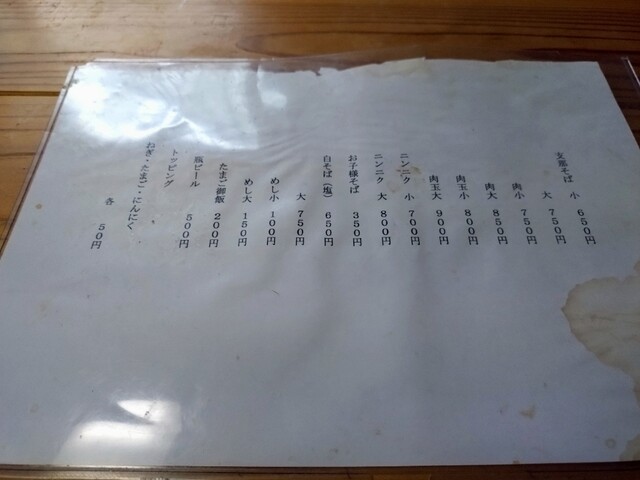 支那そば 小 650円
大 750円
肉小 750円
肉大 850円
肉玉小 800円
肉玉大 900円
ニンニク 小 700円
ニンニク 大 800円
お子様そば 350円
白そば（塩） 650円
大 750円
めし小 100円
めし大 150円
たまご御飯 200円
瓶ビール 500円
トッピング
ねぎ・たまご・にんにく
各 50円